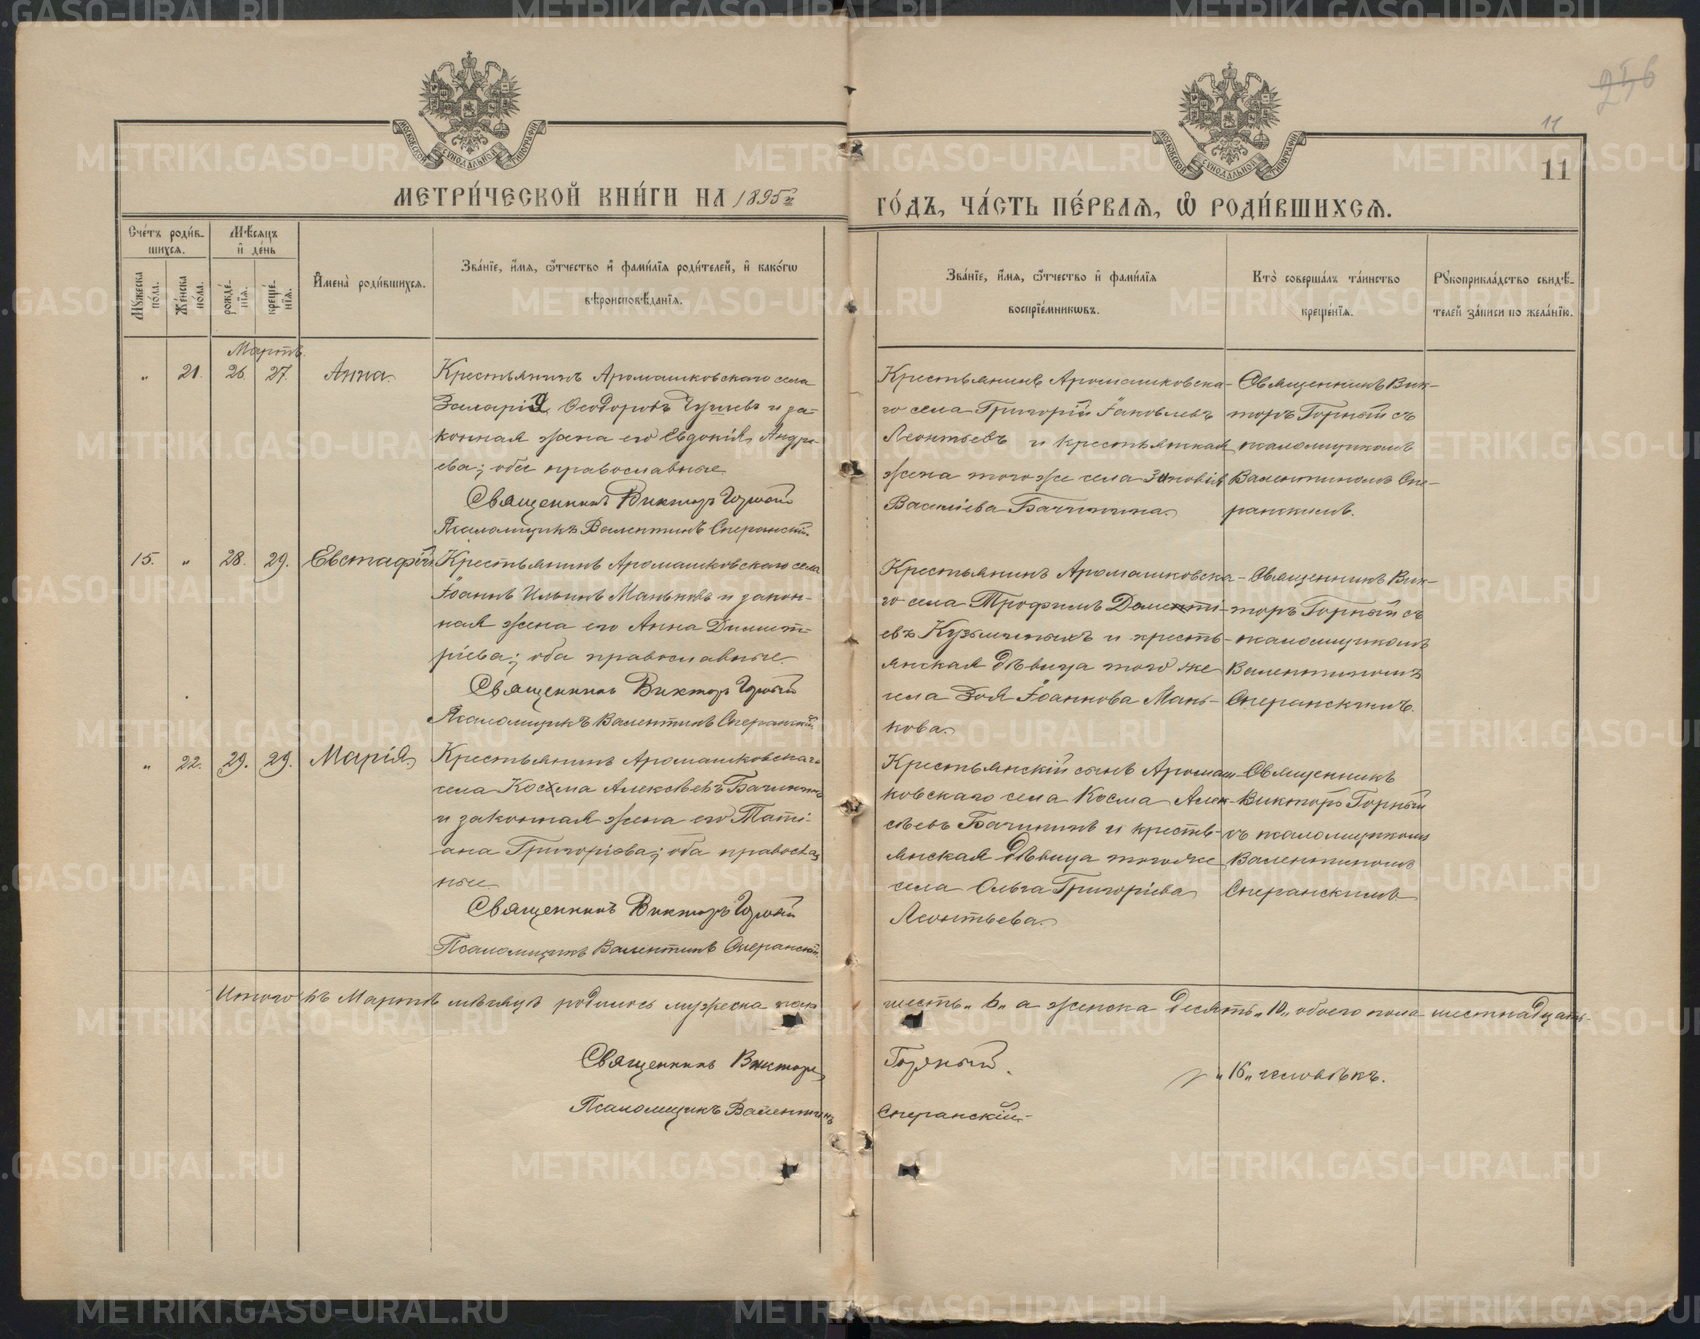 256
11
11
МОСКОВСКОЙ СѴНОДАЛЬНОЙ ТИПОГРАФІИ
МОСКОВСКОЙ СѴНОДАЛЬНОЙ ТИПОГРАФІИ
МЕТРИ́ЧЕСКОЙ КНИ́ГИ НА 1895й
ГО́ДЪ, ЧА́СТЬ ПЕ́РВАЯ, Ѡ РОДИ́ВШИХСЯ.
Сче́тъ роди́в-
шихся.
Мꙋжеска по́ла.
Же́нска по́ла.
Мѣсяцъ
и де́нь
рожде́нїя.
креще́нїя.
И҆мена̀ роди́вшихся.
Зва́нїе, и҆́мя, ѻ҆́тчество и҆ фами́лїя роди́телей, и҆ како́гѡ
вѣроисповѣ́данїя.
Зва́нїе, и҆́мя, ѻ҆́тчество и҆ фами́лїя
воспрїе́мникѡвъ.
Кто̀ соверша́лъ та́инство
креще́нїя.
Рꙋкоприкла́дство свидѣ́-
телей за́писи по жела́нїю.
Мартъ.
„ 21. 26 27. Анна.
Крестьянинъ Аромашковскаго села
Захарій Ѳеодоровъ и за-
конная жена его Евдокія Андре-
ева; оба православные
Священникъ Викторъ Горный
Псаломщикъ Валентинъ Сперанскій.
Крестьянинъ Аромашковска-
го села Григорій Іаковлевъ
Леонтьевъ и крестьянская
жена того же села Зиновія
Василіева Бачинина.
Священникъ Вик-
торъ Горный съ
псаломщикомъ
Валентиномъ Спе-
ранскимъ.
15. „ 28. 29. Евстафій
Крестьянинъ Аромашковскаго села
Іоаннъ Ильинъ Маньковъ и закон-
ная жена его Анна Димит-
ріева; оба православные.
Священникъ Викторъ Горный
Псаломщикъ Валентинъ Сперанскій.
Крестьянинъ Аромашковска-
го села Трофимъ Дометі-
евъ Кузьминыхъ и кресть-
янская дѣвица того же
села Зоя Іоаннова Мань-
кова.
Священникъ Вик-
торъ Горный съ
псаломщикомъ
Валентиномъ
Сперанскимъ.
„ 22. 29. 29. Марія.
Крестьянинъ Аромашковскаго
села Косма Алексѣевъ Бачининъ
и законная жена его Таті-
ана Григоріева; оба православ
ные
Священникъ Викторъ Горный
Псаломщикъ Валентинъ Сперанскій.
Крестьянскій сынъ Аромаш-
ковскаго села Косма Алек-
сѣевъ Бачининъ и кресть-
янская дѣвица того же
села Ольга Григоріева
Леонтьева.
Священникъ
Викторъ Горный
съ псаломщикомъ
Валентиномъ
Сперанскимъ
Итого въ Мартѣ мѣсяцѣ родилось мужеска пола шесть „6„ а женска десять „10„ обоего пола шестнадцать
„16„ человѣкъ.
Священникъ Викторъ Горный.
Псаломщикъ Валентинъ Сперанскій.
METRIKI.GASO-URAL.RU